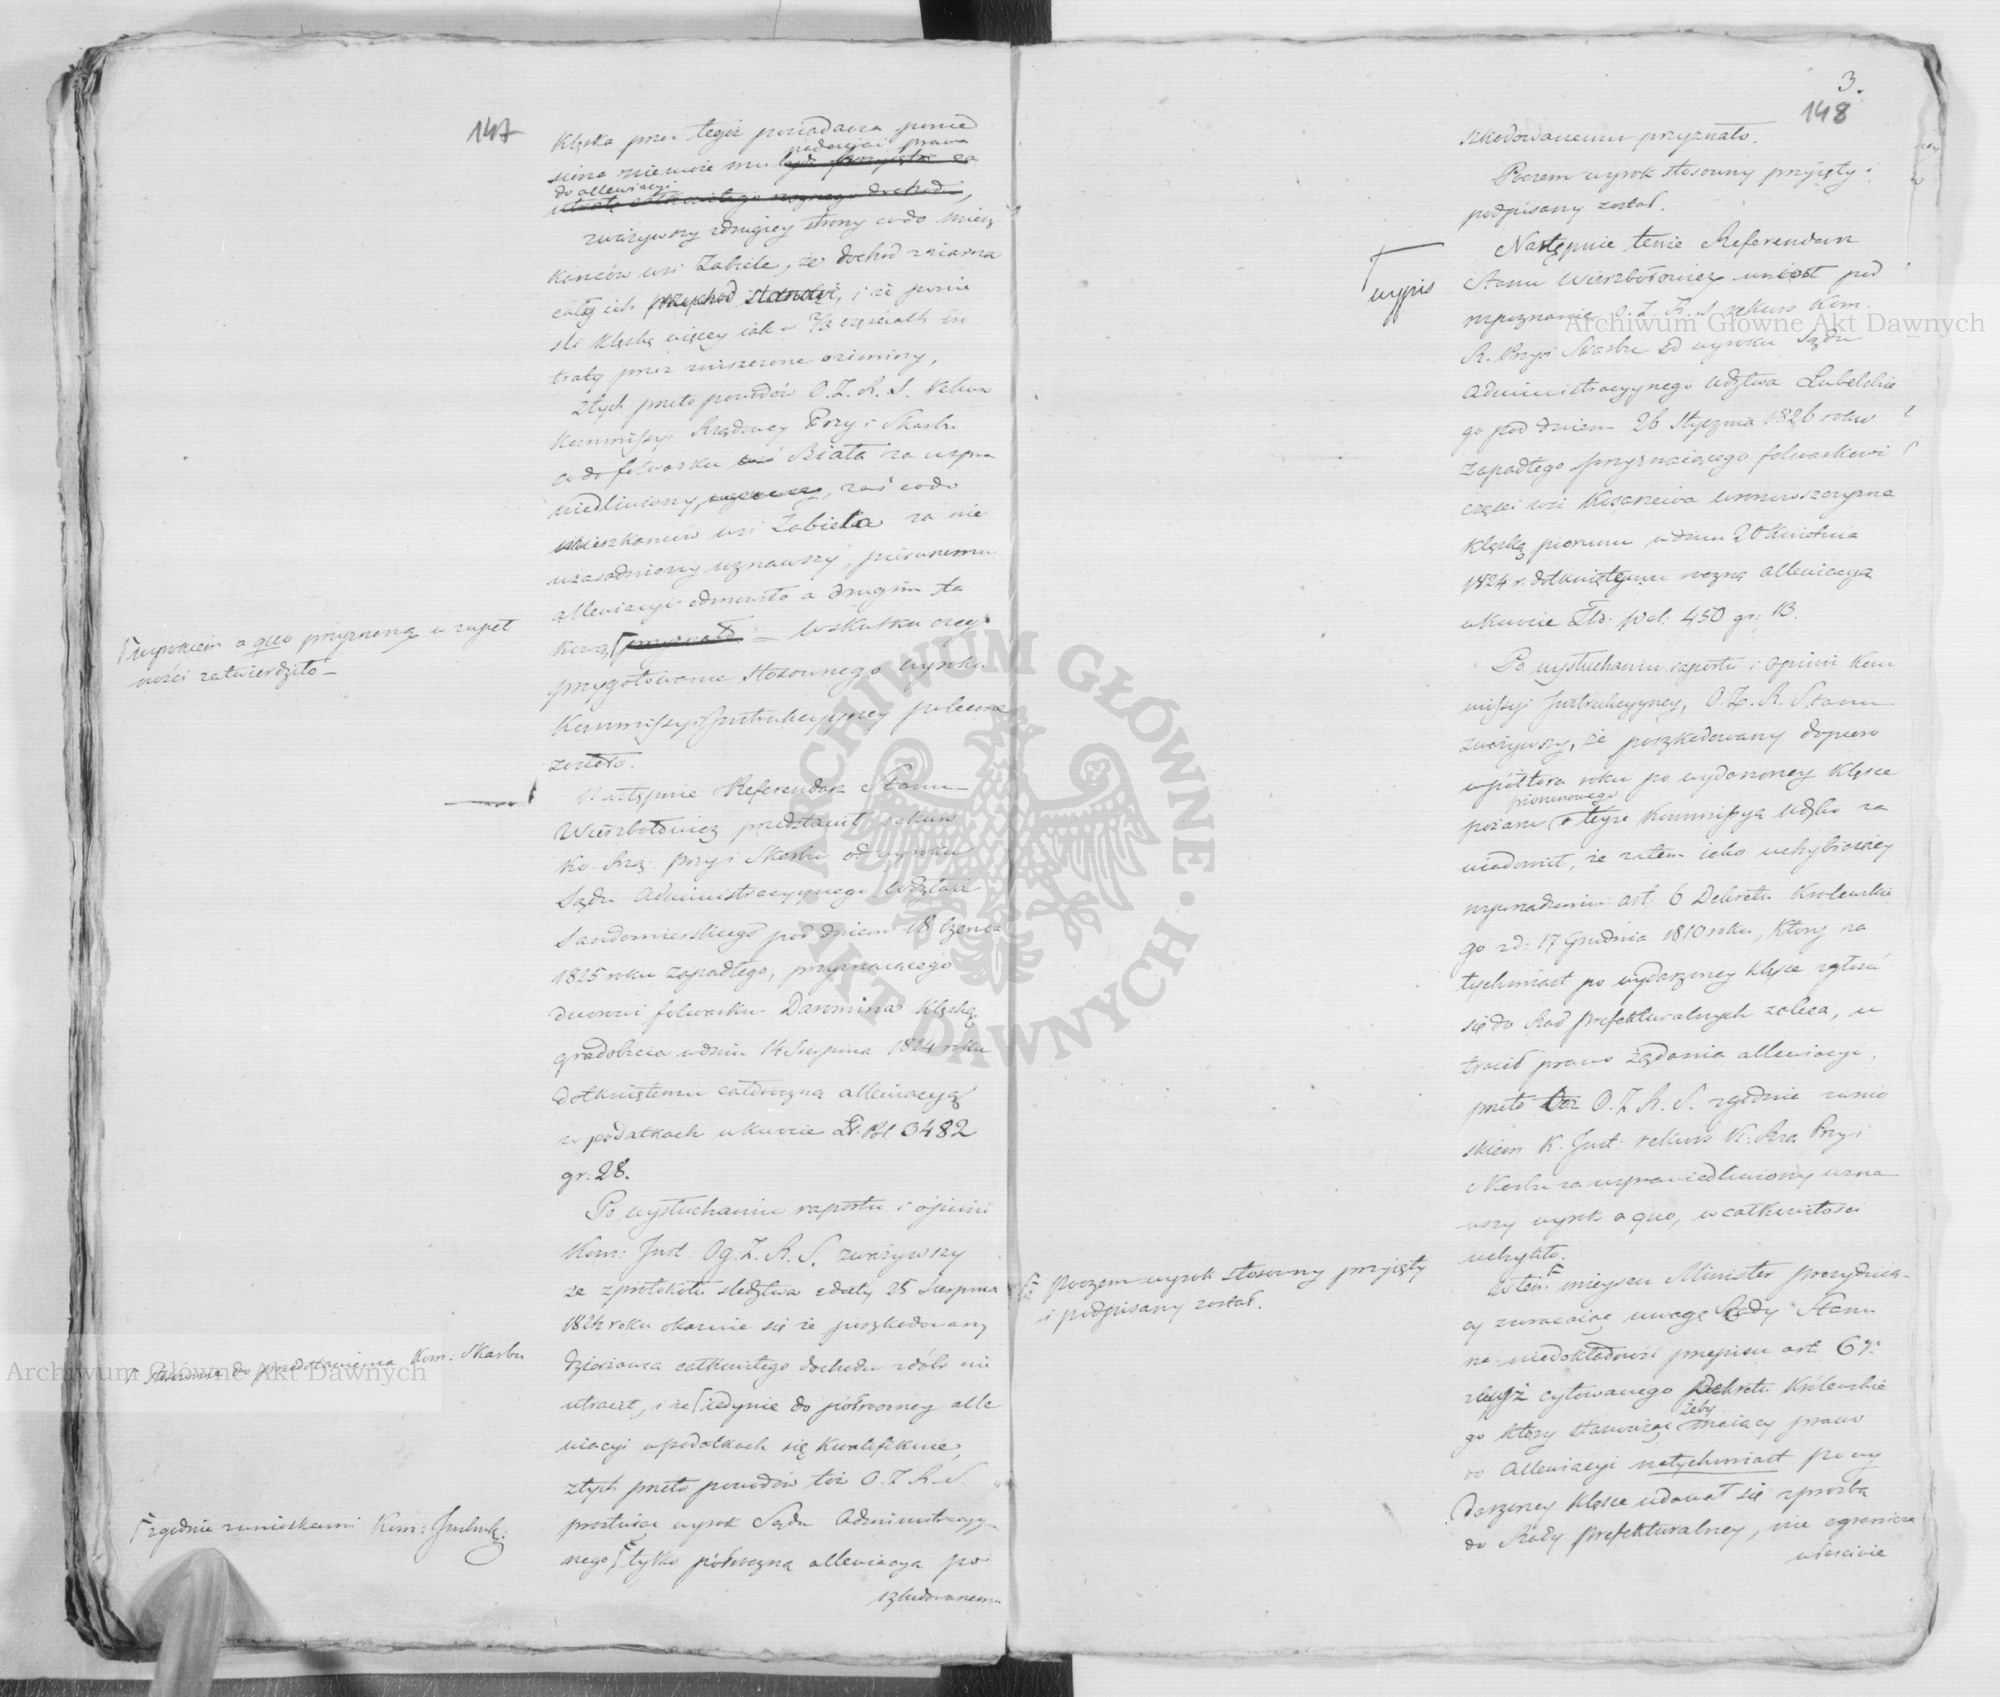 147
Klęska przez tegoż posiadacza ponie
siona niemoże mu nadawać prawa
do allewiacyi
zważywszy zdrugiey strony codo miesz
kańców wsi Zabiele, że dochód z ziarna
całej ich przychod stanowi, i że ponie
śli klęskę więcey iak w 2/3 częściach
tratę przez zniszczone oziminy,
Ztych przeto powodów O. Z. R. S. rekurs
Kommissyi Rządowey Przy: i Skarbu
codo folwarku Biała za uspra
wiedliwiony, zaś codo
mieszkańców wsi Zabiela za nie
uzasadniony uznawszy, pierwszemu
allewiacyi odmówiło a drugim ta
kową przyznało – wskutku czego
przygotowanie stosownego wyroku
Kommissyi Instrukcyyney polecone
zostało.
⌈wyrokiem a quo przyznaną w zupeł
ności zatwierdziło –
Następnie Referendarz Stanu
Wierzbołowicz przedstawił rekurs
Ko. Rzą: Przy: i Skarbu od wyroku
Sądu Administracyynego Wdztwa
Sandomierskiego pod dniem 18 Czerwca
1825 roku zapadłego, przyznaiącego
dworowi folwarku Daromina klęską
gradobicia w dniu 14 Sierpnia 1824 roku
dotkniętemu całoroczną allewiacyą
w podatkach w kwocie Zł. Pol 3482
gr. 28.
Po wysłuchaniu raportu i opinii
Kom: Inst: Og. Z. R. S. zważywszy
że z protokołu śledztwa z daty 25 Sierpnia
1824 roku okazuie się że poszkodowany
dzierżawca całkowitego dochodu z dóbr nie
utracił, i że ⌈iedynie do półroczney alle
wiacyi w podatkach się kwalifikuie,
ztych przeto powodów toż O. Z. R. S.
prostuiąc wyrok Sądu Administracyy
nego, ⌈tylko półroczną allewiacyą po
szkodowanemu
⌈ stosownie do przedstawienia Kom: Skarbu
⌈zgodnie z wnioskami Kom: Instruk:
3.
148
szkodowanemu przyznało.
Poczem wyrok stosowny przyięty i
podpisany został.
wypis
Następnie tenże Referendarz
Stanu Wierzbołowicz wniósł pod
rozpoznanie O. Z. R. S. rekurs Kom.
R. Przy: i Skarbu od wyroku Sądu
Administracyynego Wdztwa Lubelskie
go pod dniem 26 Stycznia 1826 roku
zapadłego przyznaiącego folwarkowi
części wsi Kosarzewa
klęską piorunu w dniu 20 Kwietnia
1824 r. dotkniętemu roczną allewiacyą
w kwocie Złt: Pol: 450 gr: 13.
Po wysłuchaniu raportu i opinii Kom
missyi Instrukcyyney, O. Z. R. Stanu
zważywszy, że poszkodowany dopiero
w półtora roku po wydarzoney klęsce
piorunowego
pożaru o teyże Kommissyą Wdzką za
wiadomił, że zatem iako uchybiaiący
rozporządzeniu art. 6 Dekretu Królewskie
go z d: 17 Grudnia 1810 roku, który na
tychmiast po wydarzoney klęsce zgłosić
się do Rad prefekturalnych zaleca, u
tracił prawo żądania allewiacyi,
przeto toż O. Z. R. S. zgodnie z wnio
skiem K. Inst: rekurs K: Rzą Przy: i
Skarbu za usprawiedliwiony uzna
wszy wyrok a quo, w całkowitości
uchyliło.
⌈ Poczem wyrok stosowny przyięty
i podpisany został.
W tem ⌈ mieyscu Minister prezyduią
cy zwracaiąc uwagę Rady Stanu
na niedokładność przepisu art. 6go
wyż cytowanego Dekretu Królewskie
go który stanowiąc żeby maiący prawo
do Allewiacyi natychmiast po wy
darzoney klęsce udawał się z prośbą
do Rady prefekturalney, nie ogranicza
właściwie
Archiwum Główne Akt Dawnych
Archiwum Główne Akt Dawnych
ARCHIWUM GŁÓWNE · AKT DAWNYCH ·